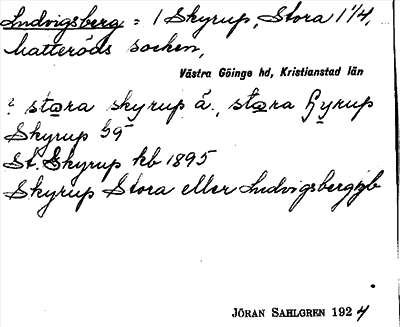 Ludvigsberg = 1 Skyrup, Stora 1 1/4,
hatteröds socken,
Västra Göinge hd, Kristianstad län
? stora skyrup å., stora Hyrup
Skyrup 59
St. Skyrup kb 1895
Skyrup Stora eller Ludvigsberg jb
JÖRAN SAHLGREN 1924